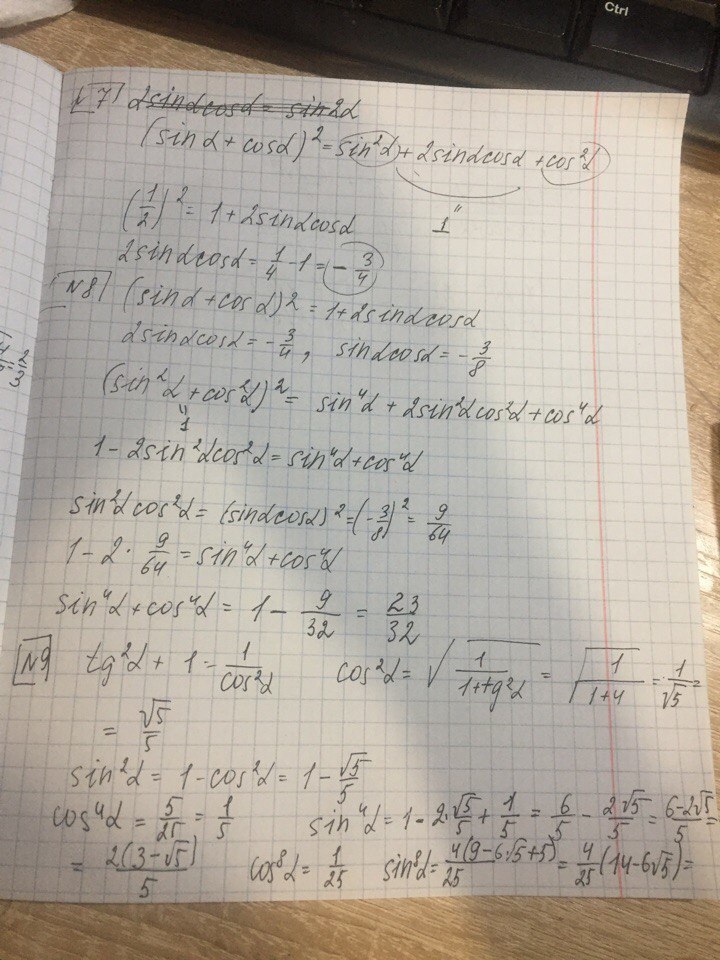 Ctrl
№7 2sinαcosα = sin2α
(sinα + cosα)² = sin²α + 2sinαcosα + cos²α
1
(1/2)² = 1 + 2sinαcosα
2sinαcosα = 1/4 - 1 = - 3/4
№8 (sinα + cosα)² = 1 + 2sinαcosα
2sinαcosα = - 3/4 , sinαcosα = - 3/8
(sin²α + cos²α)² = sin⁴α + 2sin²αcos²α + cos⁴α
1
1 - 2sin²αcos²α = sin⁴α + cos⁴α
sin²αcos²α = (sinαcosα)² = (- 3/8)² = 9/64
1 - 2 · 9/64 = sin⁴α + cos⁴α
sin⁴α + cos⁴α = 1 - 9/32 = 23/32
№9 tg²α + 1 - 1/cos²α cos²α = √(1/(1+tg²α)) = √(1/(1+4)) = 1/√5 =
= √5/5
sin²α = 1 - cos²α = 1 - √5/5
cos⁴α = 5/25 = 1/5 sin⁴α = 1 - 2·√5/5 + 1/5 = 6/5 - 2√5/5 = (6-2√5)/5 =
= 2(3-√5)/5 cos⁸α = 1/25 sin⁸α = 4(9-6√5+5)/25 = 4/25 (14-6√5) =